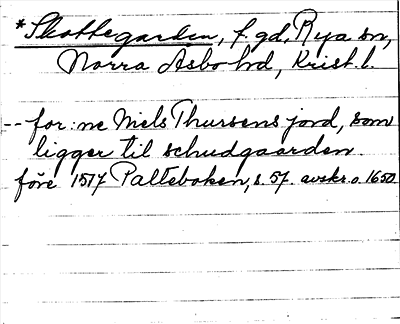 *Skottegarden, f. gd, Rya sn,
Norra Åsbo hd, Krist. l.
-- for:ne Niels Thursens jord, som
ligger til schudgaarden.
före 1517 Palteboken, s. 57. avskr. o. 1650